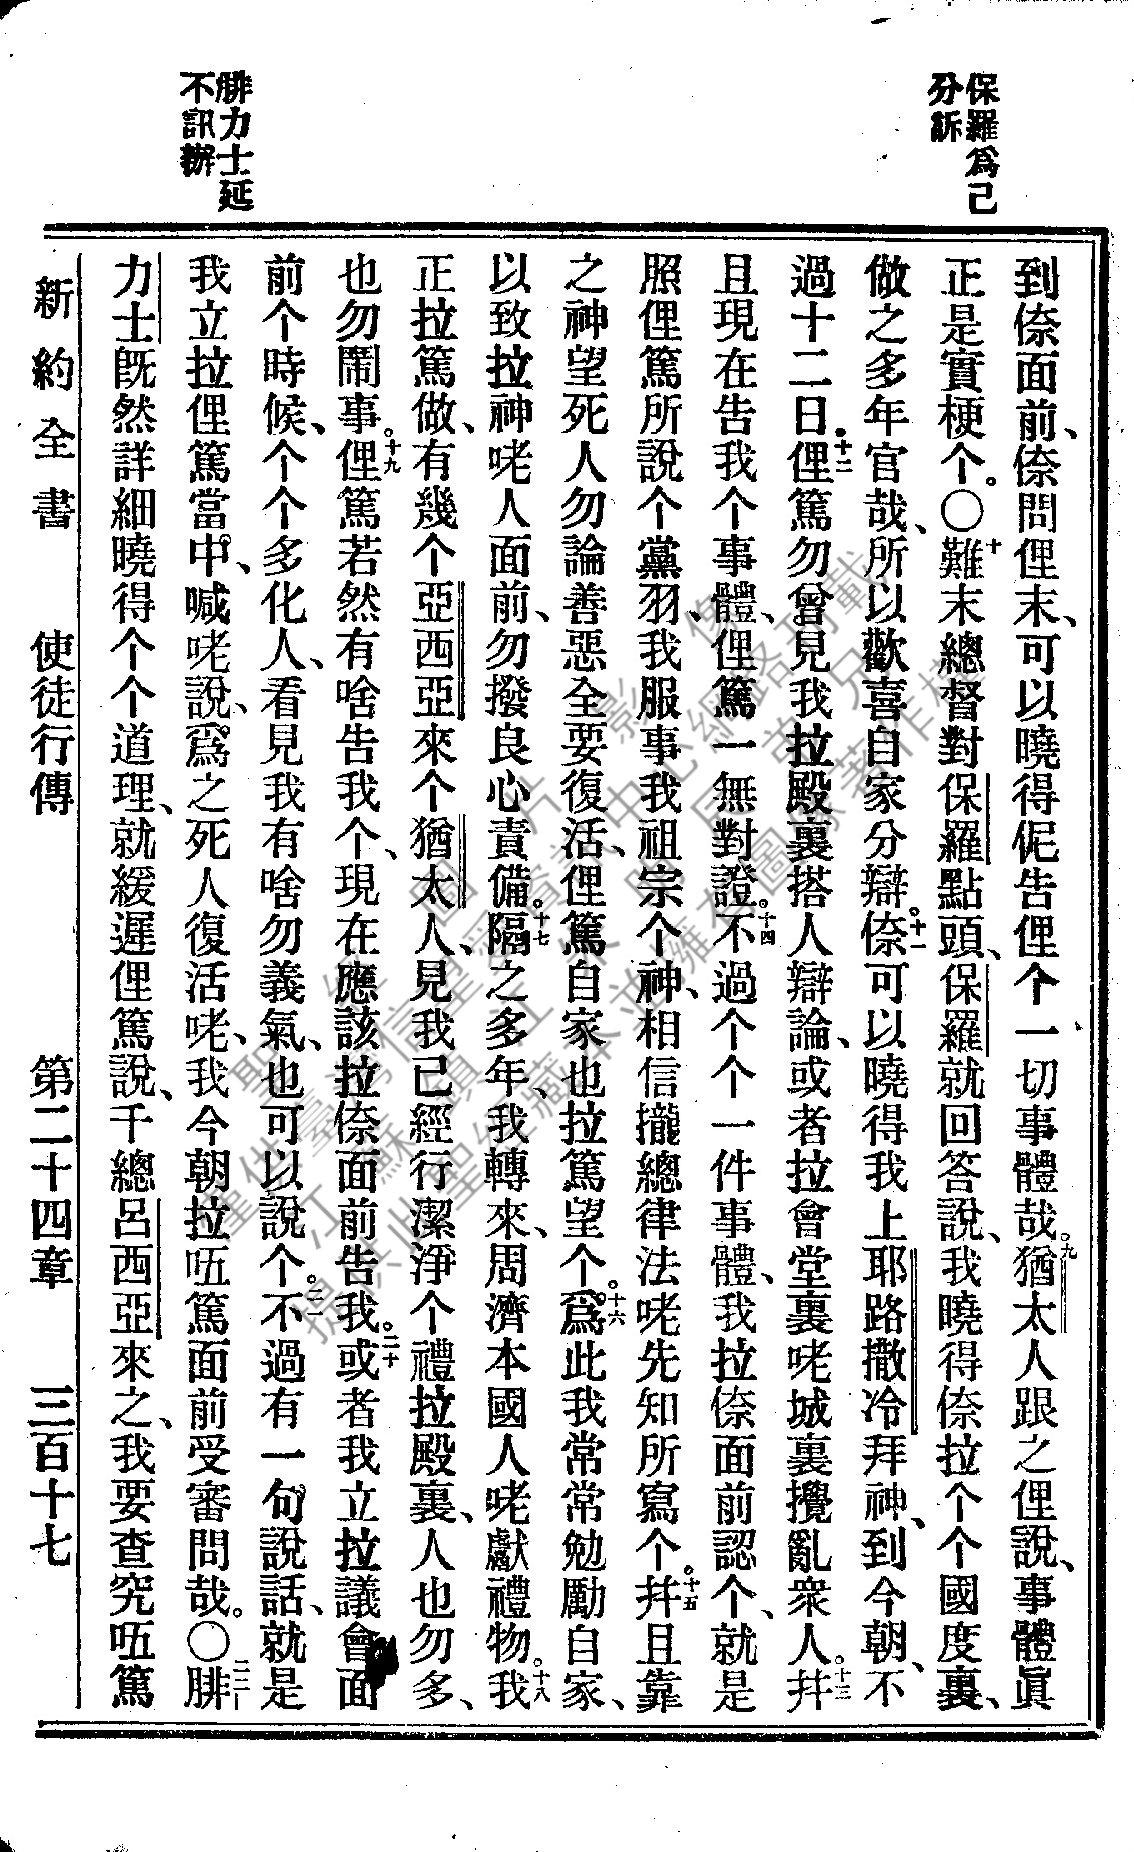 保羅爲己
分訴
腓力士延
不訊辦
到倷面前、倷問俚末、可以曉得伲告俚个一切事體哉。九猶太人跟之俚說、事體眞
正是實梗个。〇十難末總督對保羅點頭、保羅就回答說、我曉得倷拉个个國度裏、
做之多年官哉、所以歡喜自家分辯。十一倷可以曉得我上耶路撒冷拜神、到今朝、不
過十二日。十二俚篤勿曾見我拉殿裏搭人辯論、或者拉會堂裏咾城裏攪亂衆人。十三幷
且現在告我个事體、俚篤一無對證。十四不過个个一件事體、我拉倷面前認个、就是
照俚篤所說个黨羽、我服事我祖宗个神、相信攏總律法咾先知所寫个。十五幷且靠
之神望死人勿論善惡全要復活、俚篤自家也拉篤望个。十六爲此我常常勉勵自家、
以致拉神咾人面前、勿撥良心責備。十七隔之多年、我轉來、周濟本國人咾獻禮物。十八我
正拉篤做、有幾个亞西亞來个猶太人、見我已經行潔淨个禮拉殿裏、人也勿多、
也勿鬧事。十九俚篤若然有啥告我个、現在應該拉倷面前告我。二十或者我立拉議會面
前个時候、个个多化人、看見我有啥勿義氣、也可以說个。二一不過有一句說話、就是
我立拉俚篤當中、喊咾說、爲之死人復活咾、我今朝拉㕶篤面前受審問哉。〇二二腓
力士旣然詳細曉得个个道理、就緩遲俚篤說、千總呂西亞來之、我要查究㕶篤
新約全書 使徒行傳 第二十四章 三百十七